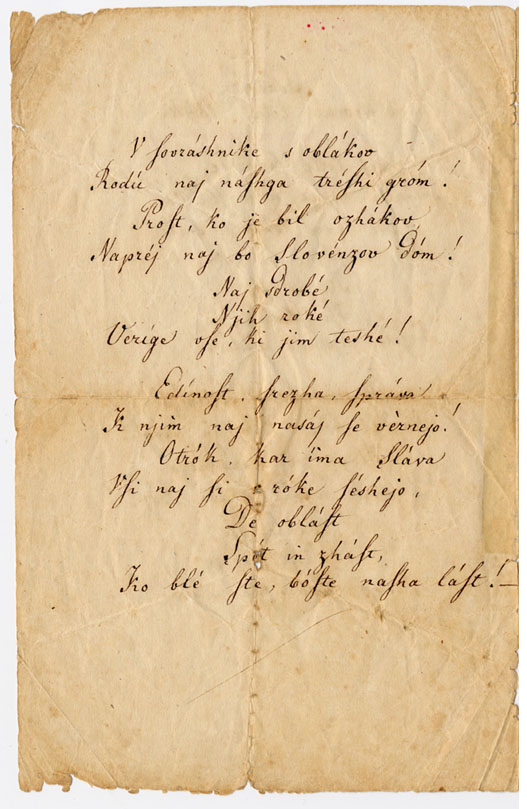 V ſovráshnike s oblákov
Rodú naj náshga tréſhi gróm!
Proſt, ko je bil ozhákov,
Napréj naj bo Slovénzov dóm!
Naj sdrobé
Njih roké
Veríge vſe, ki jim teshé!
Edínoſt, ſrezha, ſpráva
K njim naj nasáj ſe vèrnejo!
Otrók, kar ima Sláva
Vſi naj ſi v róke ſéshejo,
De obláſt
Spét in zháſt,
Ko blé ſte, bóſte naſha láſt!—